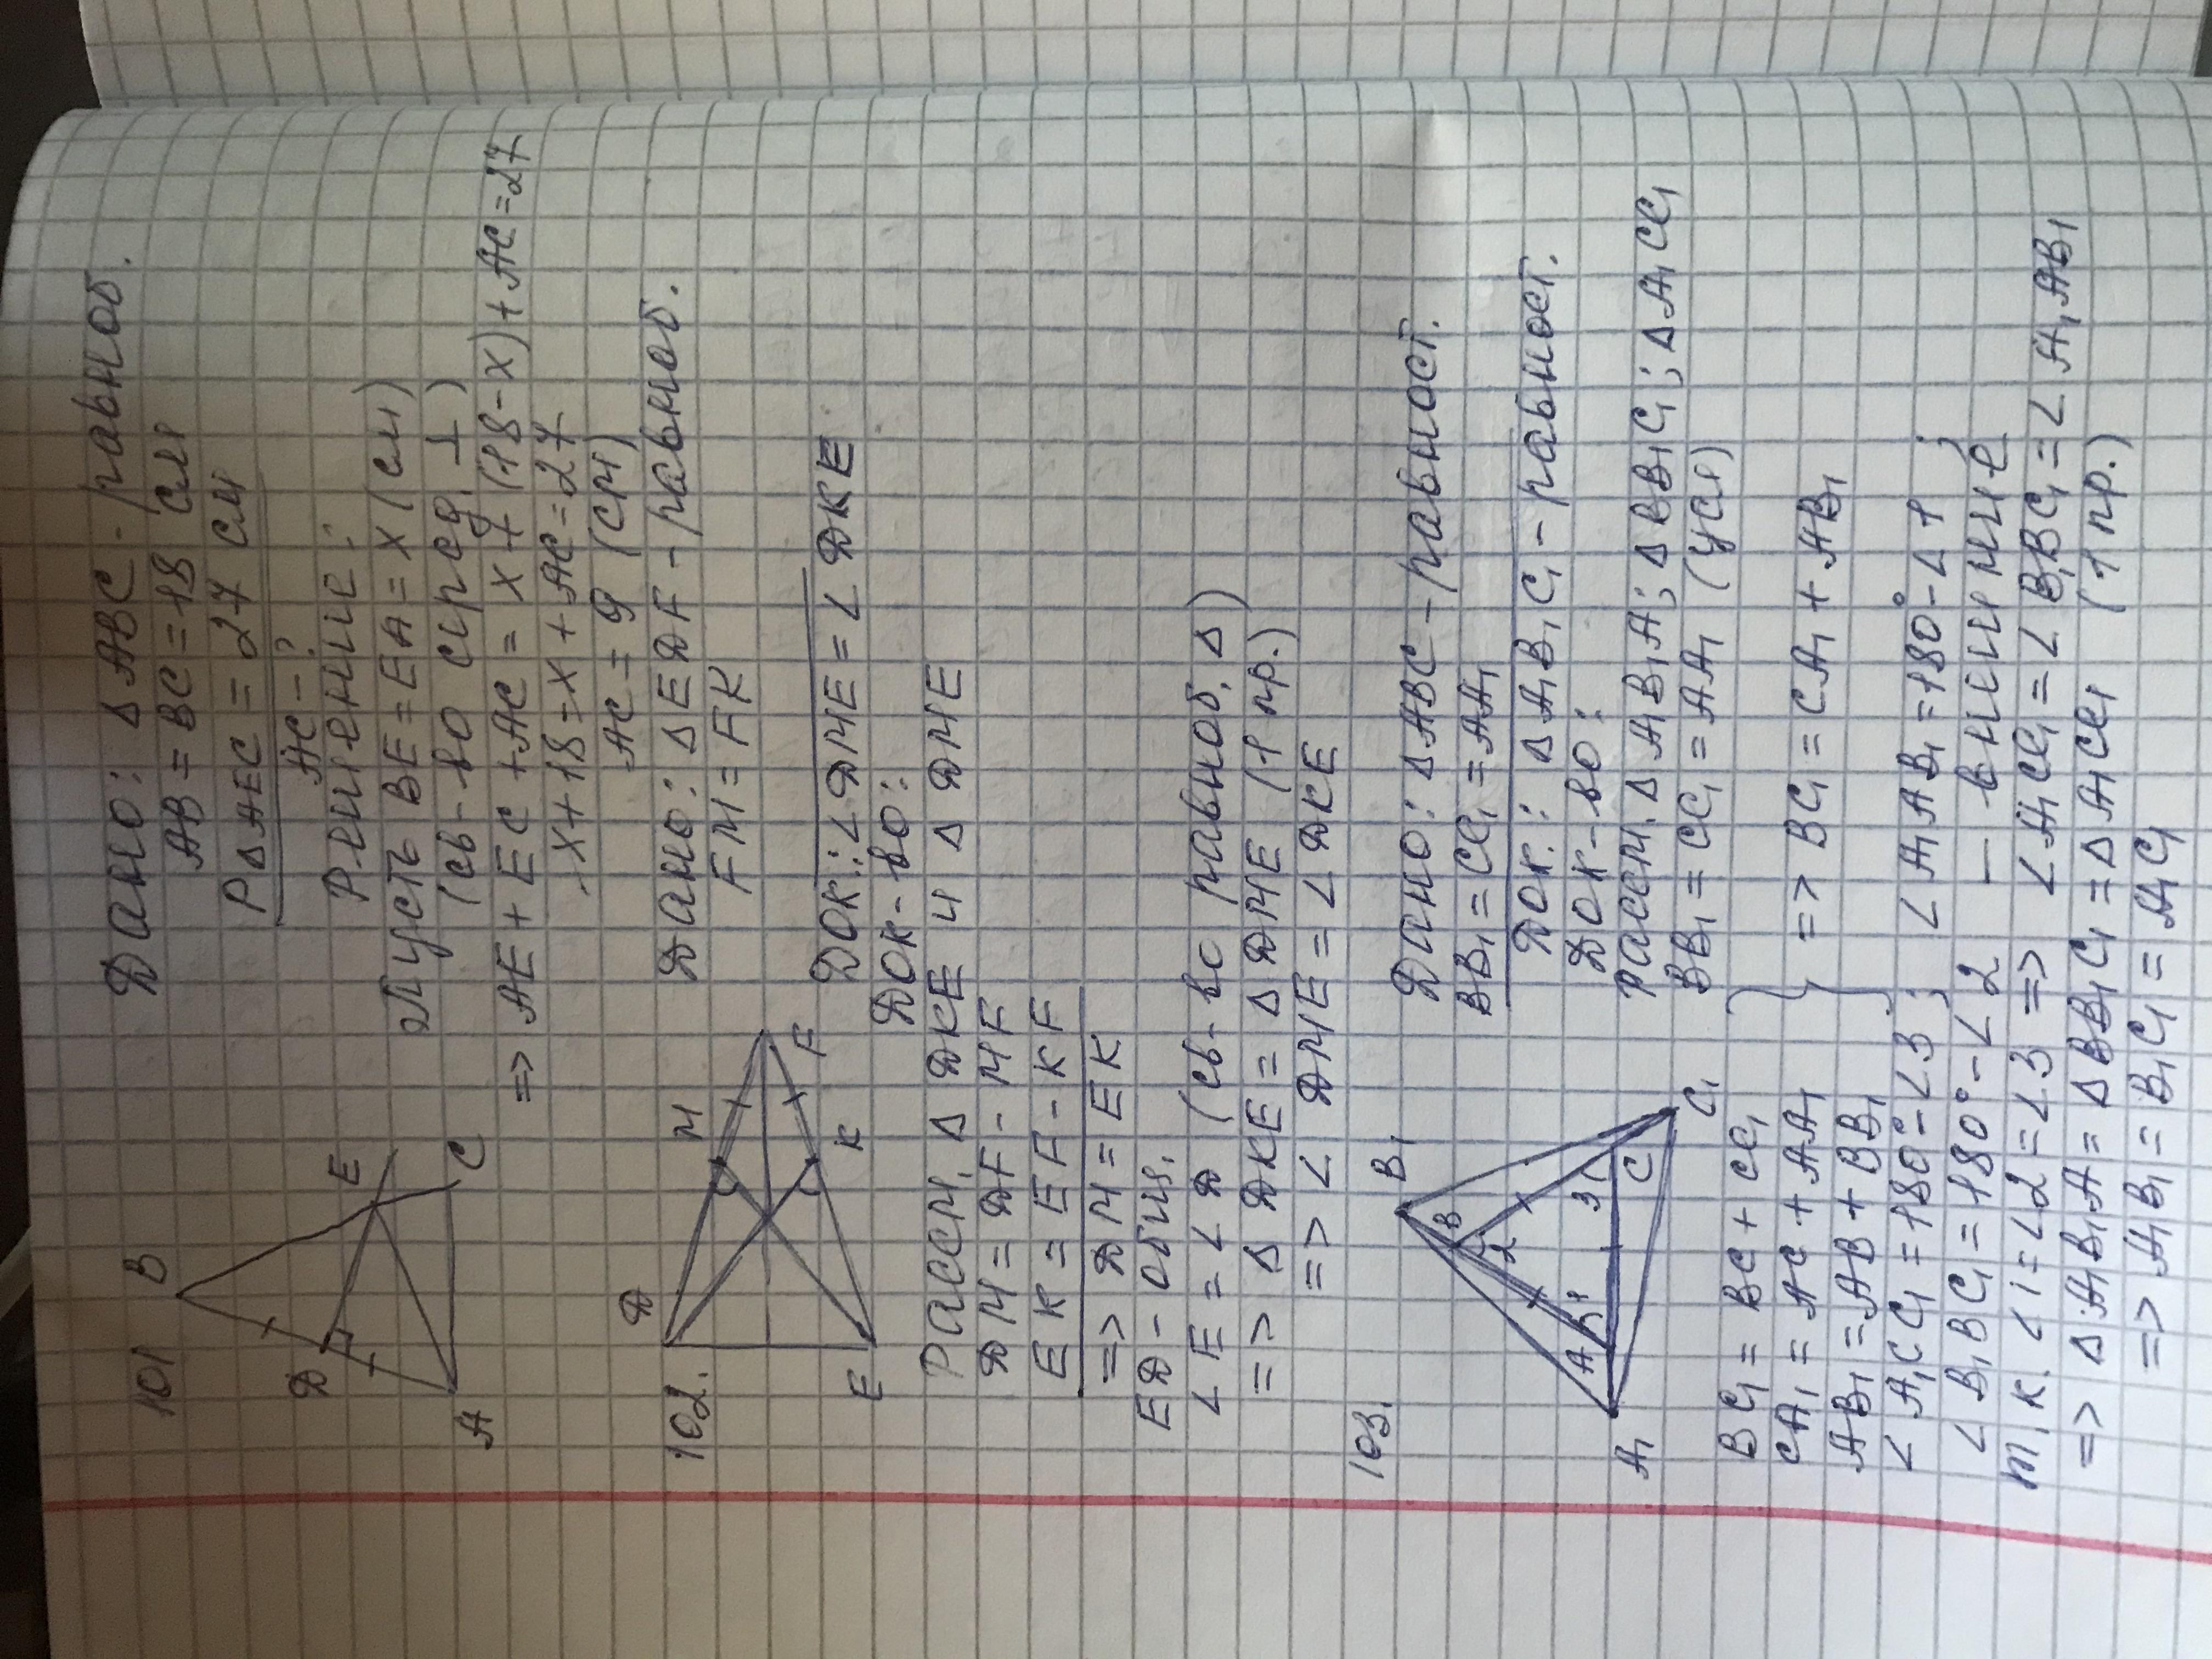 101
B
D
E
A
C
Дано: △ ABC - равноб.
AB = BC = 18 см
P△AEC = 27 см
AC - ?
Решение:
Пусть BE = EA = x (см)
(св-во серед. ⊥)
=> AE + EC + AC = x + (18 - x) + AC = 27
x + 18 - x + AC = 27
AC = 9 (см)
102.
Д
M
F
K
E
Дано: △ EДF - равноб.
FM = FK
Док.: ∠ ДME = ∠ ДKE
Док-во:
Рассм. △ ДKE и △ ДME
ДM = ДF - MF
EK = EF - KF
=> ДM = EK
EД - общ.
∠ E = ∠ Д (св-во равноб. △)
=> △ ДKE = △ ДME (1 пр.)
=> ∠ ДME = ∠ ДKE
103.
B1
B
2
A
1
3
C
A1
C1
Дано: △ ABC - равност.
BB1 = CC1 = AA1
Док.: △ A1B1C1 - равност.
Док-во:
Рассм. △ A1B1A; △ BB1C1; △ A1CC1
BB1 = CC1 = AA1 (усл)
BC1 = BC + CC1
CA1 = AC + AA1 } => BC1 = CA1 + AB1
AB1 = AB + BB1
∠ A1CC1 = 180° - ∠3; ∠ A1AB1 = 180° - ∠1;
∠ B1BC1 = 180° - ∠2 — внешние
т.к. ∠1 = ∠2 = ∠3 => ∠A1CC1 = ∠ B1BC1 = ∠ A1AB1
=> △ A1B1A = △ BB1C1 = △ A1CC1 (1 пр.)
=> A1B1 = B1C1 = A1C1